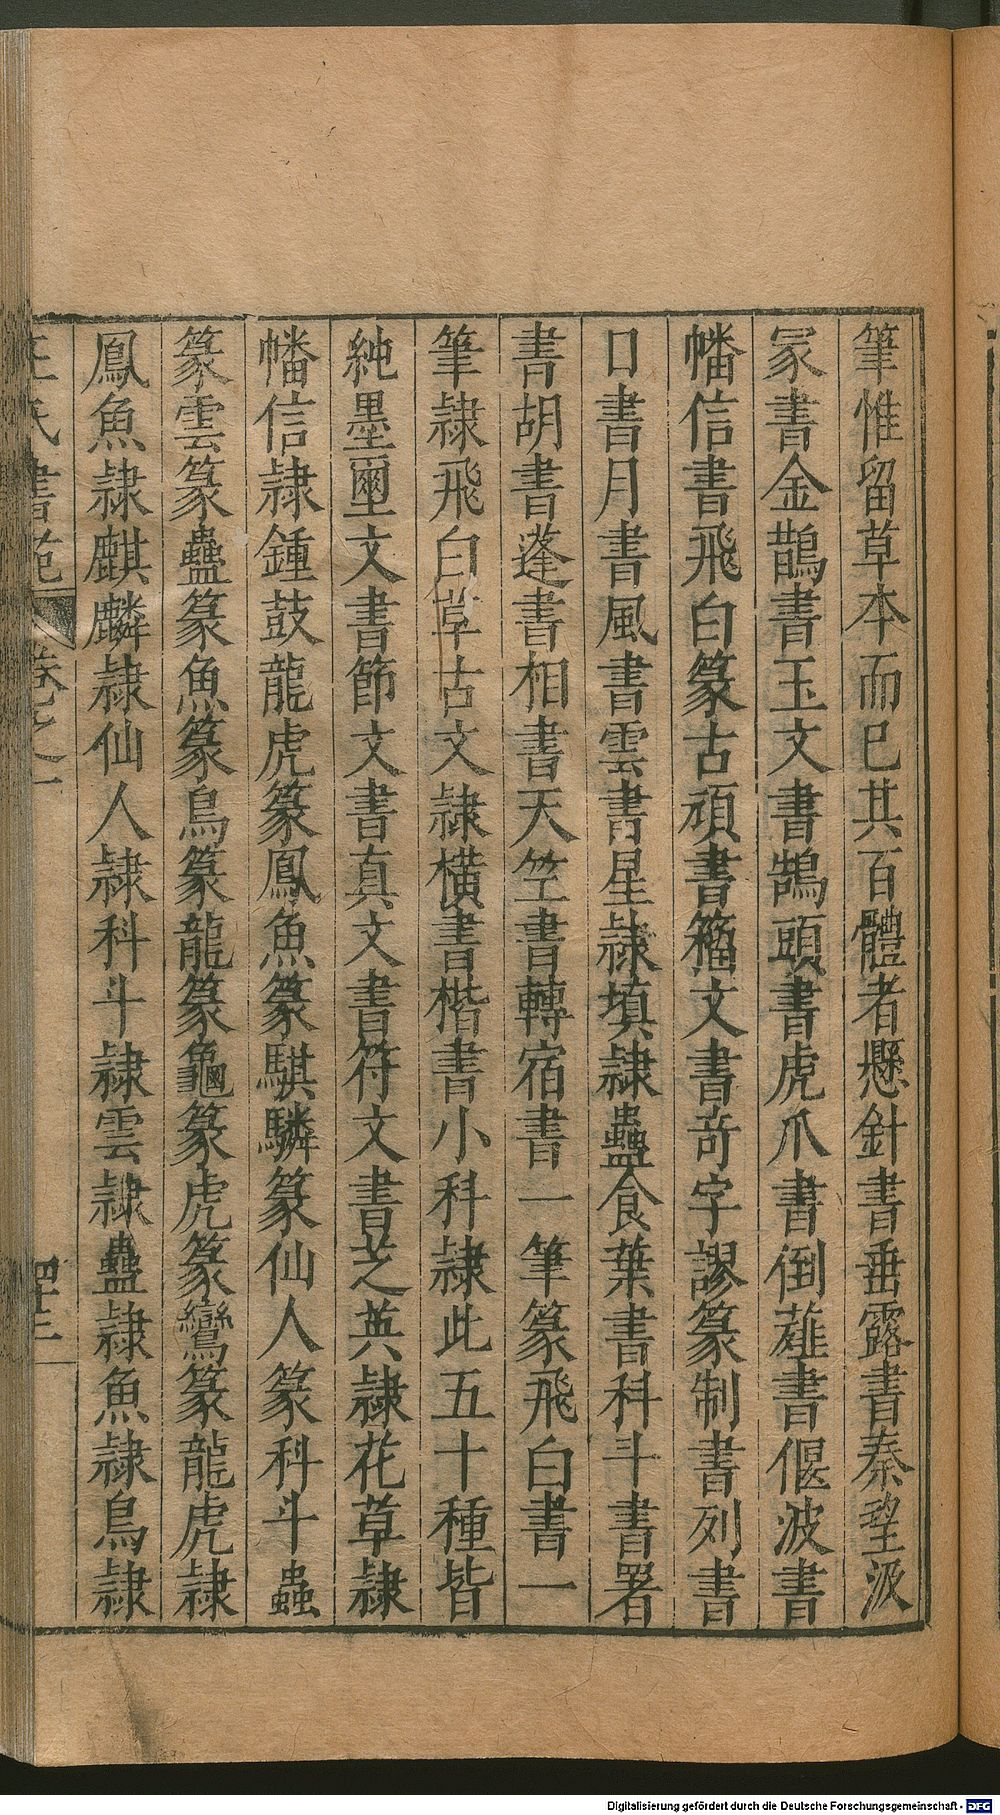 筆惟留草本而已其百體者懸針書垂露書秦望汲
冡書金鵲書玉文書鵠頭書虎爪書倒薤書偃波書
幡信書飛白篆古頑書籕文書奇字謬篆制書列書
日書月書風書雲書星隷填隷蠱食葉書科斗書署
書胡書蓬書相書天竺書轉宿書一筆篆飛白書一
筆隷飛白草古文隷橫書楷書小科隷此五十種皆
純墨璽文書節文書真文書符文書芝英隷花草隷
幡信隷鍾鼓龍虎篆鳳魚篆騏驎篆仙人篆科斗蟲
篆雲篆蠱篆魚篆鳥篆龍篆龜篆虎篆鸞篆龍虎隷
鳳魚隷麒麟隷仙人隷科斗隷雲隷蠱隷魚隷鳥隷
王氏書苑 卷之一 四十三
Digitalisierung gefördert durch die Deutsche Forschungsgemeinschaft - DFG